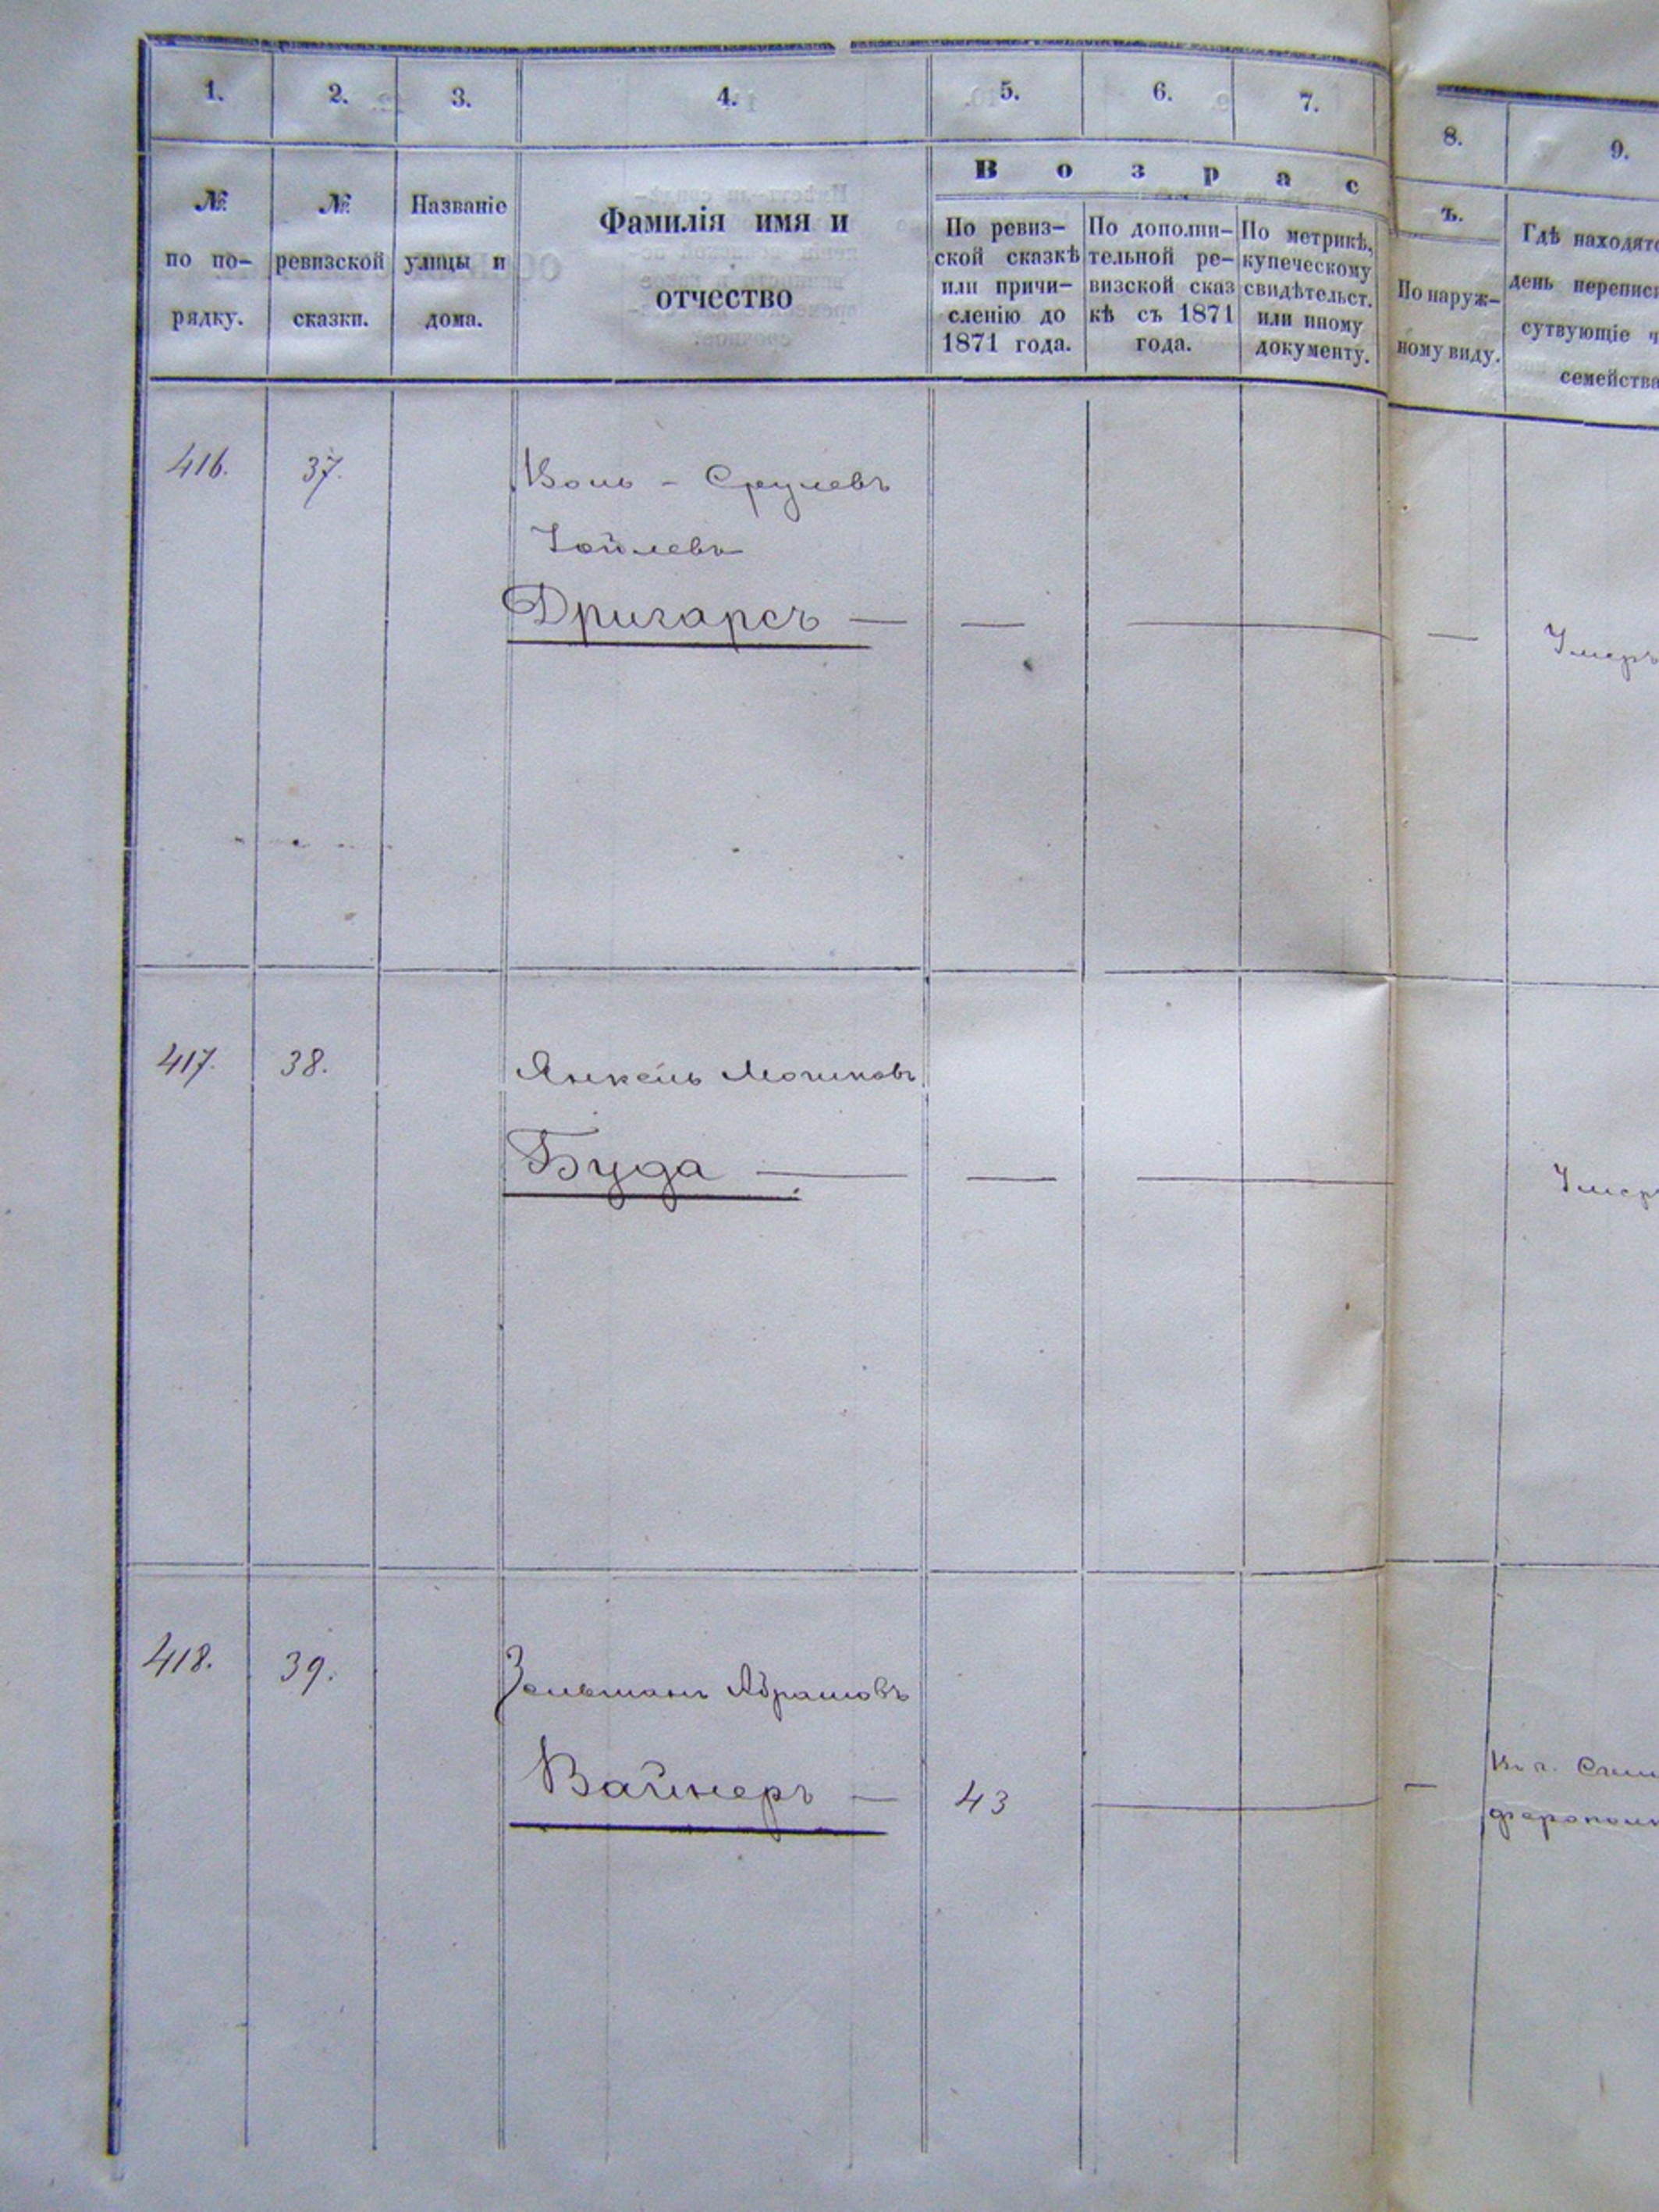 1. 2. 3. 4. 5. 6. 7. 8. 9.
№ по по-рядку.
№ ревизской сказки.
Названіе улицы и дома.
Фамилія имя и
отчество
В о з р а с ъ.
По ревиз-
ской сказкѣ
или причи-
сленію до
1871 года.
По дополни-
тельной ре-
визской сказ
кѣ съ 1871
года.
По метрикѣ,
купеческому
свидѣтельст.
или иному
документу.
По наруж-
ному виду.
Гдѣ находятс
день переписи
сутвующіе ч
семейства
416. 37.
Іойлевъ
Дригарсъ — — — — Умеръ
417. 38. Янкель Мошковъ
Буда — — — Умеръ
418. 39. Зельманъ Абрамовъ
Вайнеръ — 43 — —
Въ г. Сим
ферополѣ